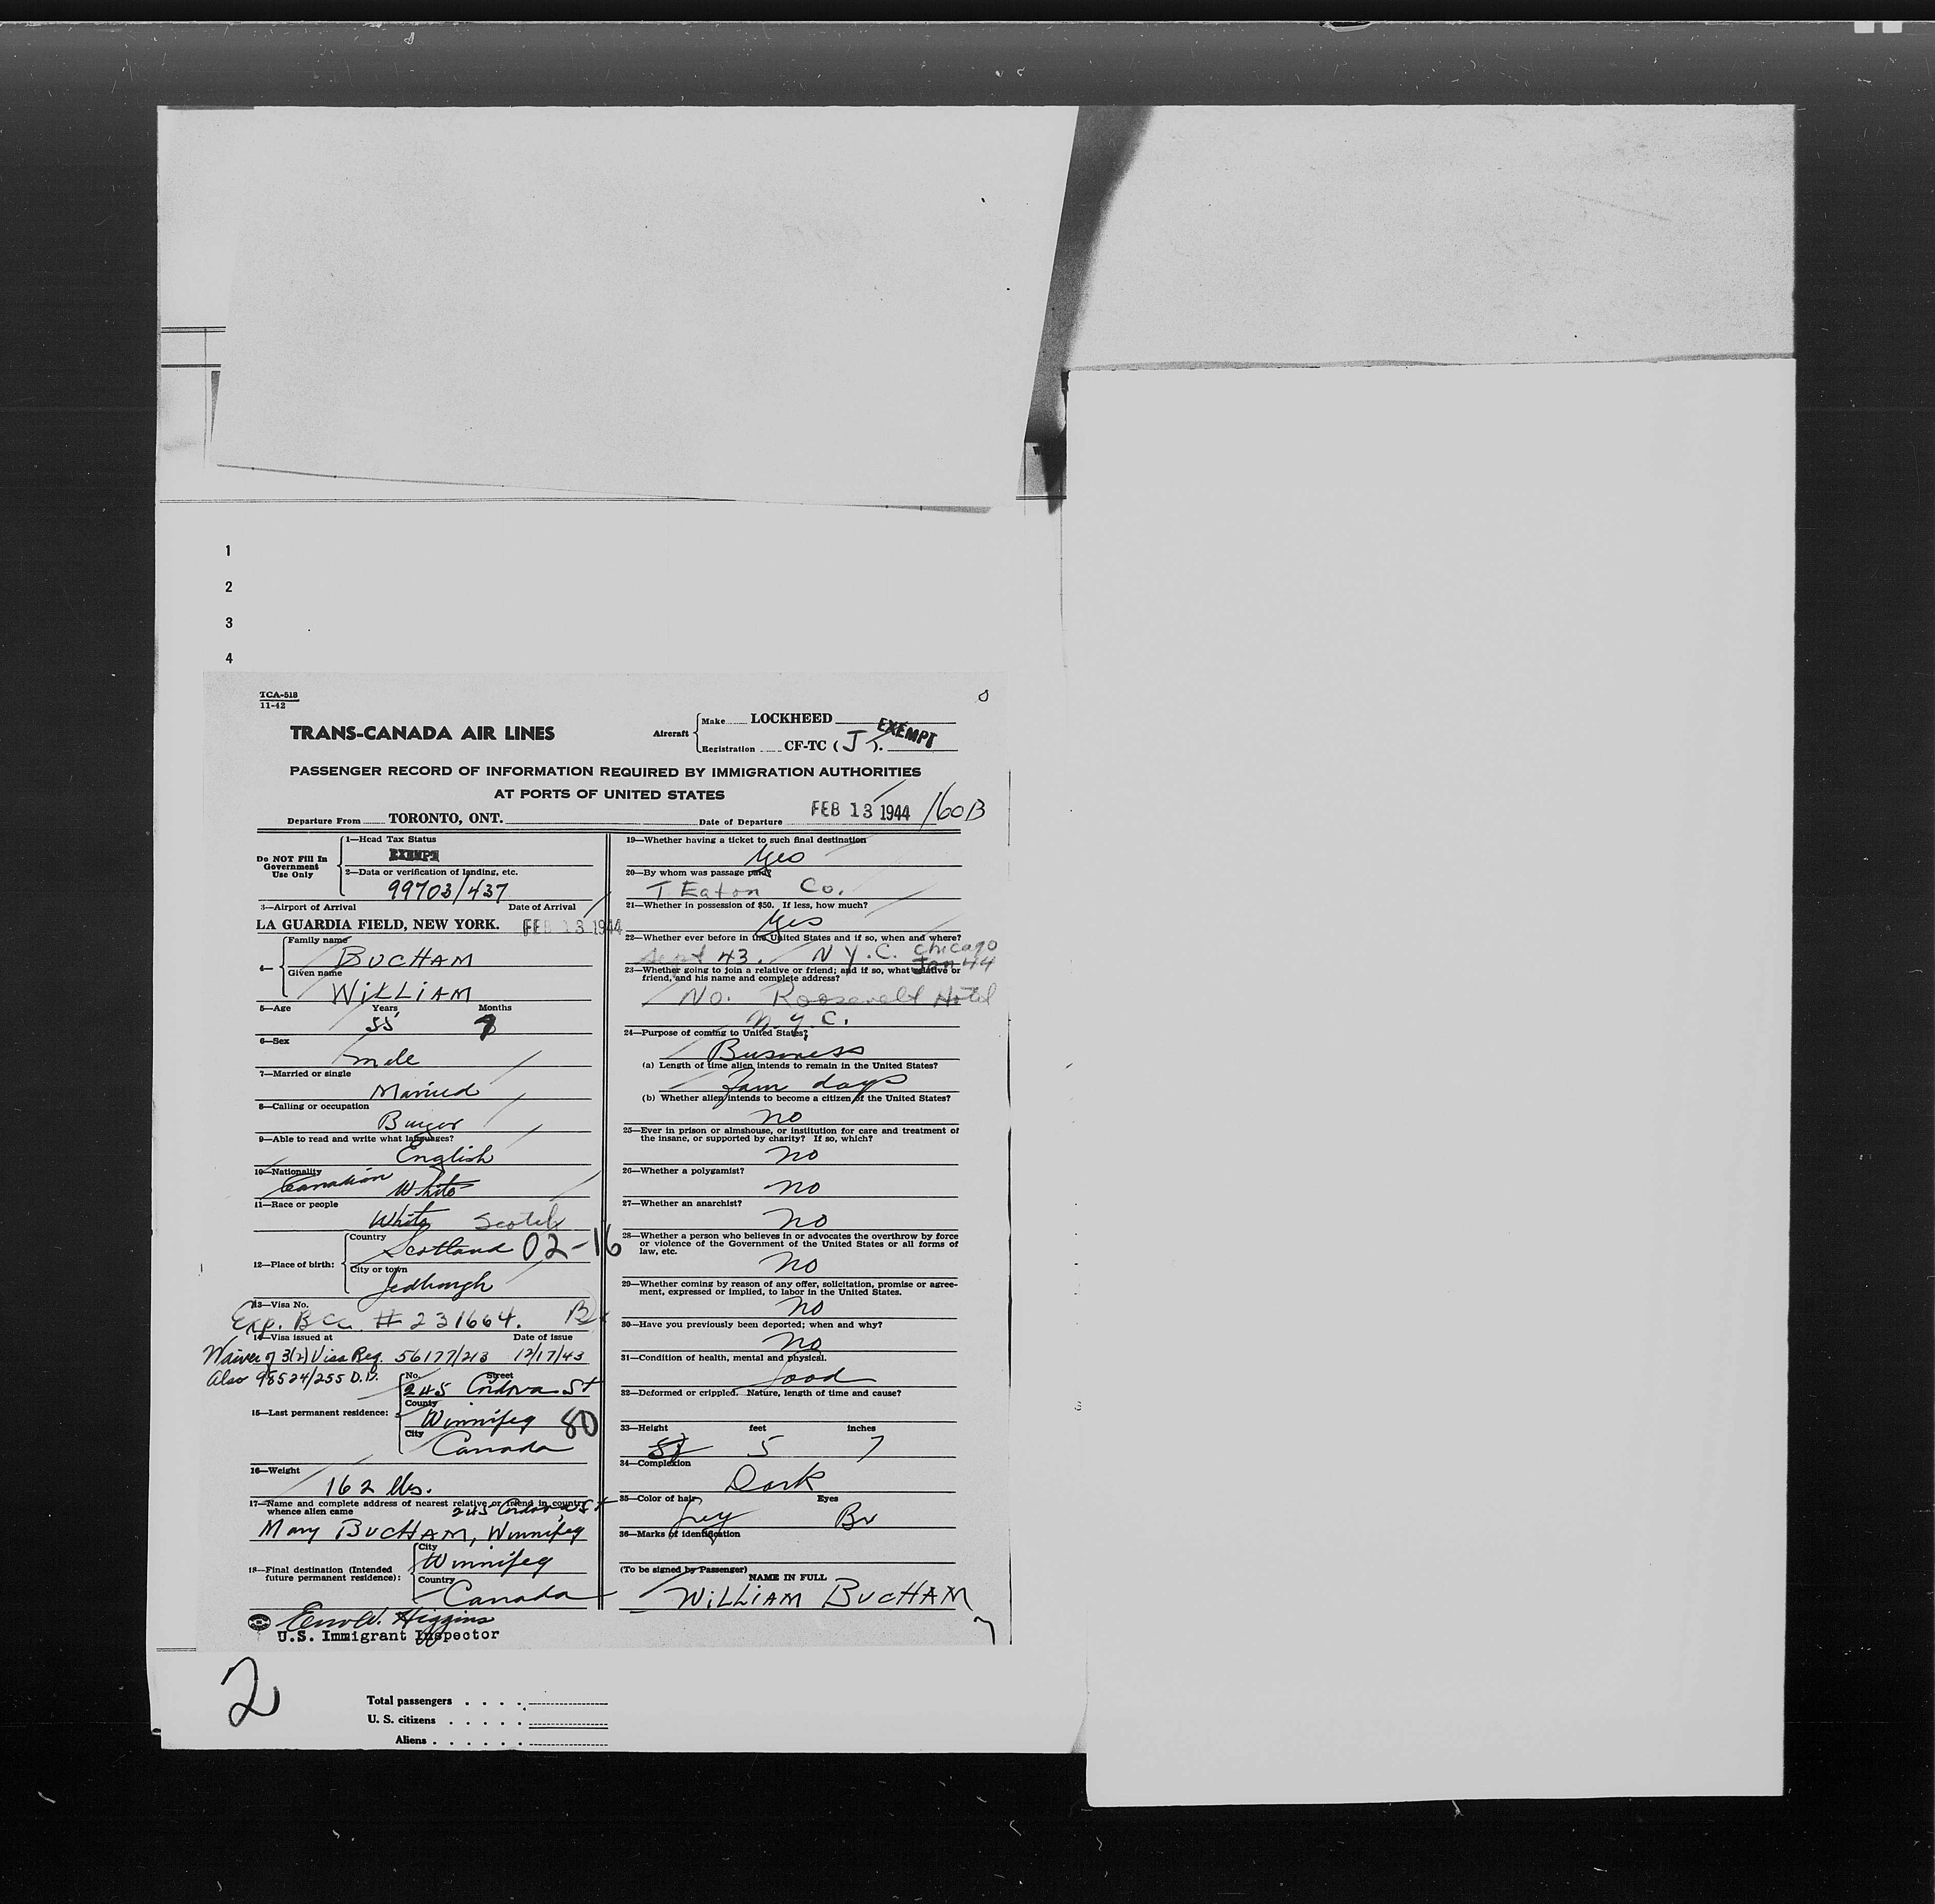 1
2
3
4
TCA-518
11-42
TRANS-CANADA AIR LINES
Aircraft
Make LOCKHEED
Registration CF-TC (J).
EXEMPT
PASSENGER RECORD OF INFORMATION REQUIRED BY IMMIGRATION AUTHORITIES
AT PORTS OF UNITED STATES
Departure From TORONTO, ONT. Date of Departure FEB 13 1944 160B
Do NOT Fill In Government Use Only
1—Head Tax Status
EXEMPT
2—Data or verification of landing, etc.
99703/437
3—Airport of Arrival Date of Arrival
LA GUARDIA FIELD, NEW YORK. FEB 13 1944
4—
Family name
BUCHAM
Given name
WILLIAM
5—Age Years Months
55
6—Sex
male
7—Married or single
Married
8—Calling or occupation
Buyer
9—Able to read and write what languages?
English
10—Nationality
Canadian White
11—Race or people
White Scotch
12—Place of birth:
Country
Scotland 02-16
City or town
Jedburgh
13—Visa No.
Exp. BCC. # 231664.
14—Visa issued at Date of issue
Waiver of 3(2) Visa Reg. 56177/213 12/17/43
Also 98524/255 D.D.
15—Last permanent residence:
No. Street
245 Cordova St
County
Winnipeg 80
City
Canada
16—Weight
162 lbs.
17—Name and complete address of nearest relative or friend in country
whence alien came
245 Cordova St
Mary BUCHAM, Winnipeg
18—Final destination (Intended
future permanent residence):
City
Winnipeg
Country
Canada
Higgins
U.S. Immigrant Inspector
19—Whether having a ticket to such final destination
Yes
20—By whom was passage paid?
T. Eaton Co.
21—Whether in possession of $50. If less, how much?
Yes
22—Whether ever before in the United States and if so, when and where?
Sept 43. N.Y.C. Chicago
Jan 44
23—Whether going to join a relative or friend; and if so, what relative or
friend, and his name and complete address?
No. Roosevelt Hotel
N.Y.C.
24—Purpose of coming to United States?
Business
(a) Length of time alien intends to remain in the United States?
days
(b) Whether alien intends to become a citizen of the United States?
no
25—Ever in prison or almshouse, or institution for care and treatment of
the insane, or supported by charity? If so, which?
no
26—Whether a polygamist?
no
27—Whether an anarchist?
no
28—Whether a person who believes in or advocates the overthrow by force
or violence of the Government of the United States or all forms of
law, etc.
no
29—Whether coming by reason of any offer, solicitation, promise or agree-
ment, expressed or implied, to labor in the United States.
no
30—Have you previously been deported; when and why?
no
31—Condition of health, mental and physical.
Good
32—Deformed or crippled. Nature, length of time and cause?
33—Height feet inches
5 7
34—Complexion
Dark
35—Color of hair Eyes
Grey Br
36—Marks of identification
(To be signed by Passenger)
NAME IN FULL
WILLIAM BUCHAM
2
Total passengers
U. S. citizens
Aliens